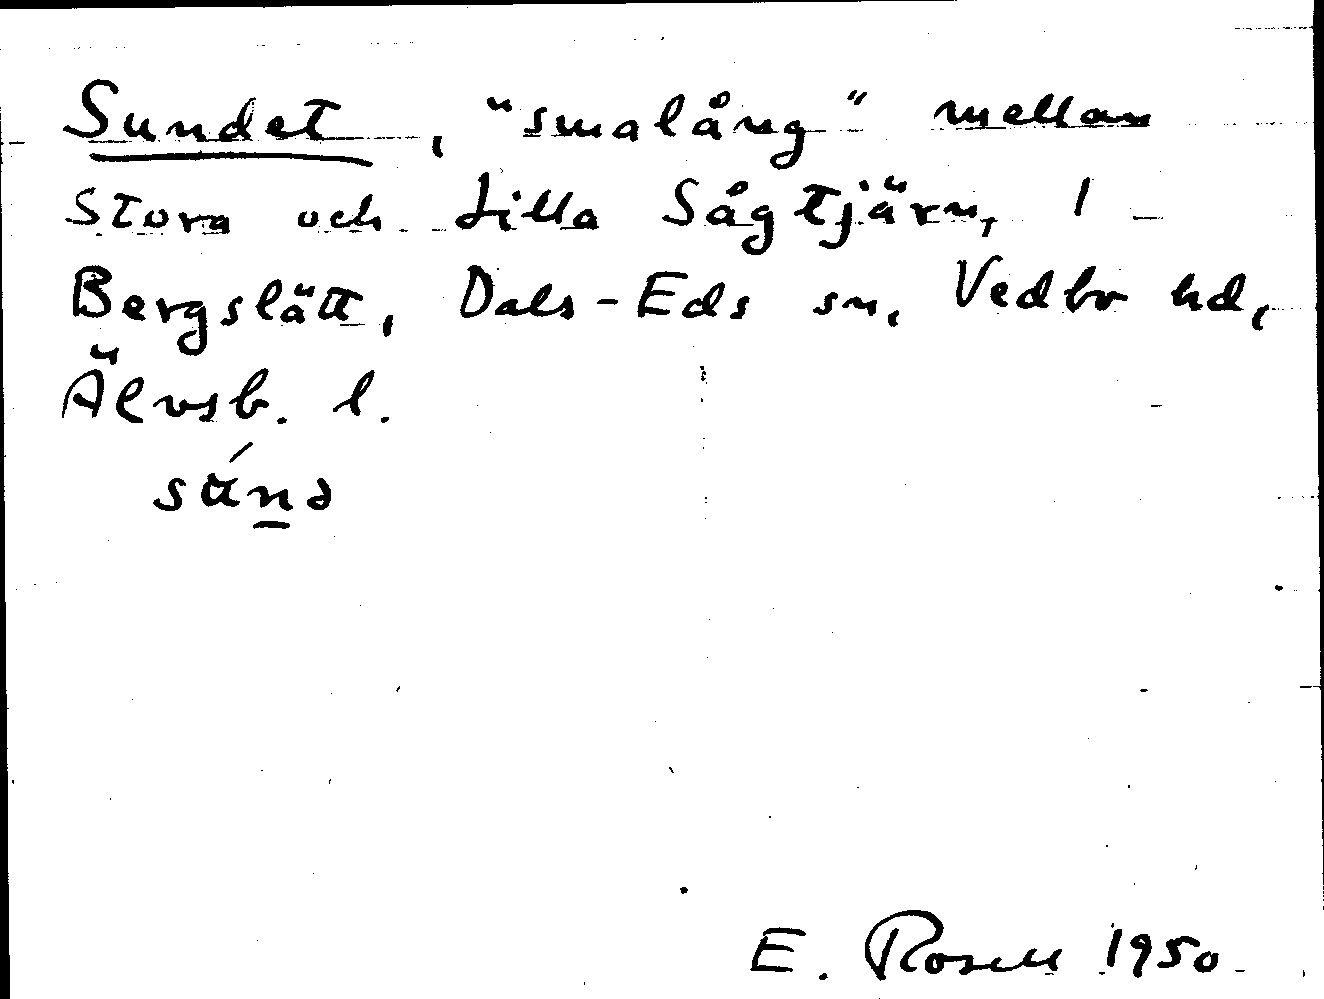 Sundet, "smalång" mellan
Stora och Lilla Sågtjärn, 1
Bergslätt, Dals-Eds sn, Vedbo hd,
Älvsb. l.
sú̵nə
E. Rosell 1950